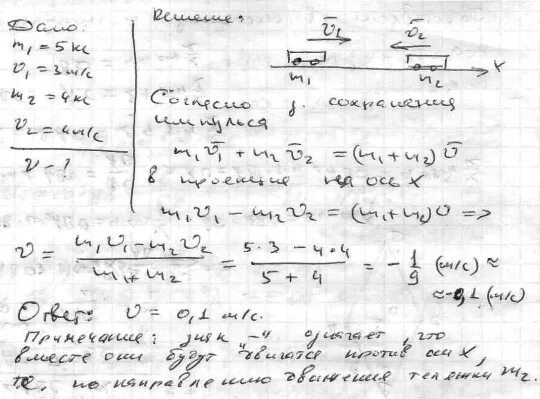 Дано:
m₁ = 5 кг
v₁ = 3 м/с
m₂ = 4 кг
v₂ = 4 м/с
v - ?
Решение:
v̄₁ v̄₂
m₁ m₂ x
Согласно з. сохранения
импульса
m₁v̄₁ + m₂v̄₂ = (m₁+m₂)v̄
в проекции на ось X
m₁v₁ - m₂v₂ = (m₁+m₂)v =>
v = (m₁v₁ - m₂v₂)/(m₁+m₂) = (5·3 - 4·4)/(5+4) = -1/9 (м/с) ≈
≈ -0,1 (м/с)
Ответ: v = 0,1 м/с.
Примечание: знак "-" означает, что
вместе они будут двигатся против оси X,
т.е. по направлению движения тележки m₂.